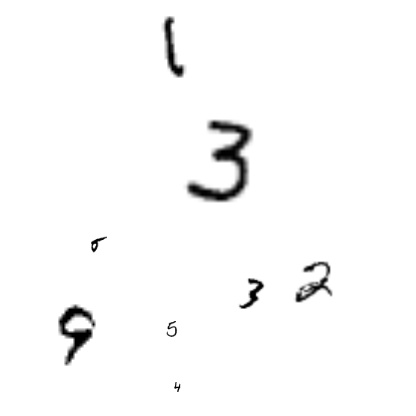 1
3
5
3 2
9 5
4